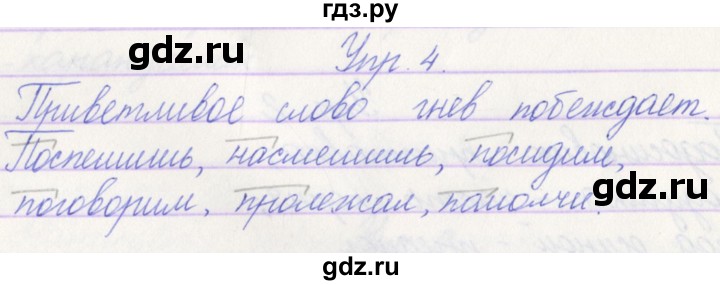 гдз.ру
gdz.ru gdz.ru
Упр. 4.
Приветливое слово гнев побеждает.
Поспешишь, насмешишь, посидим,
gdz.ru
поговорим, пролежал, помолчи.
gdz.ru gdz.ru